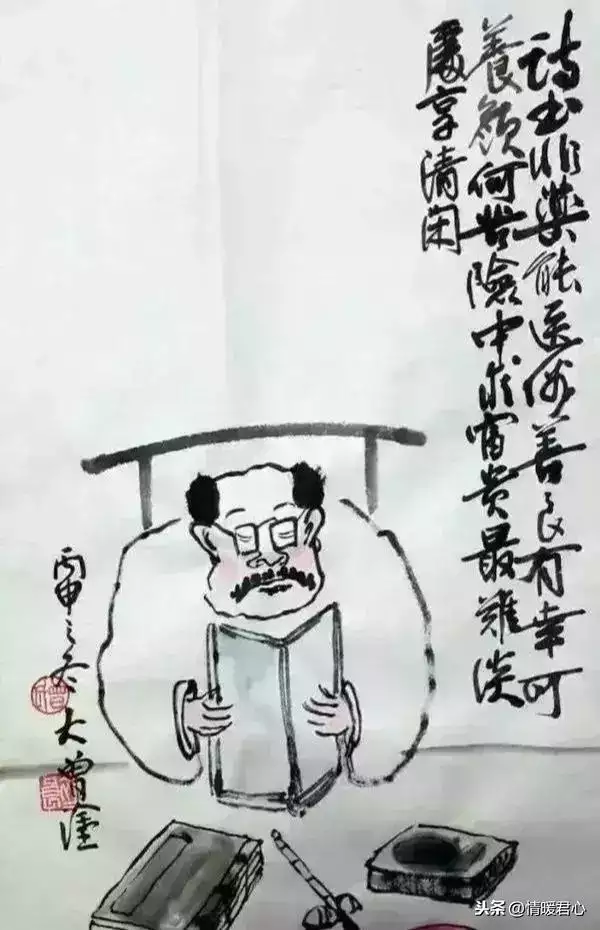 诗书非藥能医俗善良有幸可
養颜何苦險中求富贵最難淡
處享清闲
丙申之冬
大曾
头条 @情暖君心